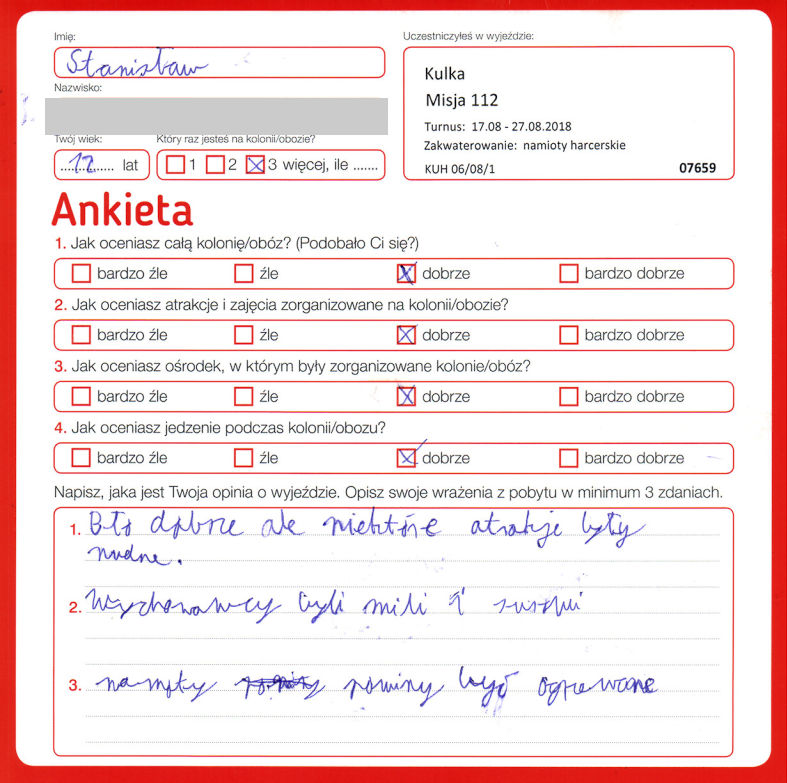 Imię:
Stanisław
Uczestniczyłeś w wyjeździe:
Kulka
Misja 112
Turnus: 17.08 - 27.08.2018
Zakwaterowanie: namioty harcerskie
KUH 06/08/1 07659
Nazwisko:
Twój wiek: Który raz jesteś na kolonii/obozie?
12 lat 1 2 3 więcej, ile .......
Ankieta
1. Jak oceniasz całą kolonię/obóz? (Podobało Ci się?)
bardzo źle źle dobrze bardzo dobrze
2. Jak oceniasz atrakcje i zajęcia zorganizowane na kolonii/obozie?
bardzo źle źle dobrze bardzo dobrze
3. Jak oceniasz ośrodek, w którym były zorganizowane kolonie/obóz?
bardzo źle źle dobrze bardzo dobrze
4. Jak oceniasz jedzenie podczas kolonii/obozu?
bardzo źle źle dobrze bardzo dobrze
Napisz, jaka jest Twoja opinia o wyjeździe. Opisz swoje wrażenia z pobytu w minimum 3 zdaniach.
1. Bło dobrze ale niektóre atrakcje były
nudne.
2. Wychowawcy byli mili i
3. namioty powiny być ogrzewane